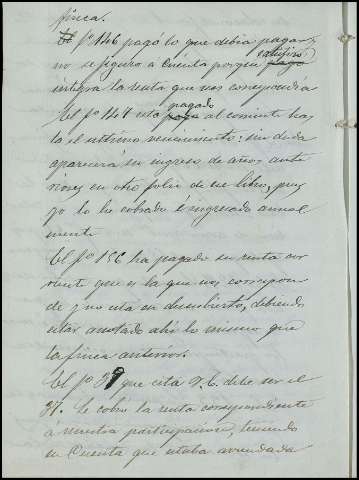 finca.
El fº 146 pagó lo que debía pagar,
no se figuro a Cuenta porque satisfizo pagó
integra la renta que nos correspondía
El fº 147 esta pagado paga al corriente has
ta el ultimo vencimiento: sin duda
aparecera su ingreso de años ante
riores en otro folio de ese libro, pues
yo lo he cobrado é ingresado anual
mente
El fº 156 ha pagado su renta cor
riente que es la que nos correspon
de y no esta en descubierto, debiendo
estar anotado ahi lo mismo que
la finca anterior.
El fº 39 que cita V. C. debe ser el
37. Se cobra la renta correspondiente
á nuestra participacion, teniendo
en Cuenta que estaba arrendada